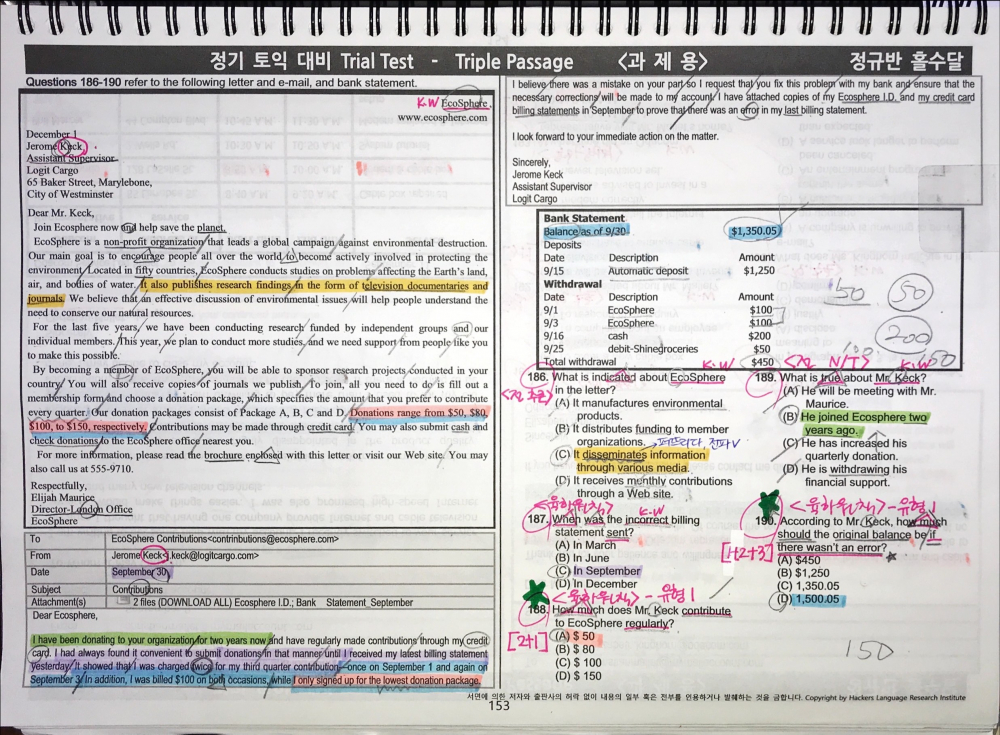 정기 토익 대비 Trial Test - Triple Passage <과 제 용> 정규반 흘수달
Questions 186-190 refer to the following letter and e-mail, and bank statement.
K·W EcoSphere
www.ecosphere.com
December 1
Jerome Keck
Assistant Supervisor
Logit Cargo
65 Baker Street, Marylebone,
City of Westminster
Dear Mr. Keck,
Join Ecosphere now and help save the planet.
EcoSphere is a non-profit organization that leads a global campaign against environmental destruction.
Our main goal is to encourage people all over the world to become actively involved in protecting the
environment. Located in fifty countries, EcoSphere conducts studies on problems affecting the Earth's land,
air, and bodies of water. It also publishes research findings in the form of television documentaries and
journals. We believe that an effective discussion of environmental issues will help people understand the
need to conserve our natural resources.
For the last five years, we have been conducting research funded by independent groups and our
individual members. This year, we plan to conduct more studies, and we need support from people like you
to make this possible.
By becoming a member of EcoSphere, you will be able to sponsor research projects conducted in your
country. You will also receive copies of journals we publish. To join, all you need to do is fill out a
membership form and choose a donation package, which specifies the amount that you prefer to contribute
every quarter. Our donation packages consist of Package A, B, C and D. Donations range from $50, $80,
$100, to $150, respectively. Contributions may be made through credit card. You may also submit cash and
check donations to the EcoSphere office nearest you.
For more information, please read the brochure enclosed with this letter or visit our Web site. You may
also call us at 555-9710.
Respectfully,
Elijah Maurice
Director-London Office
EcoSphere
To EcoSphere Contributions<contributions@ecosphere.com>
From Jerome Keck<j.keck@logitcargo.com>
Date September 30
Subject Contributions
Attachment(s) 2 files (DOWNLOAD ALL) Ecosphere I.D.; Bank Statement_September
Dear Ecosphere,
I have been donating to your organization for two years now and have regularly made contributions through my credit
card. I had always found it convenient to submit donations in that manner until I received my latest billing statement
yesterday. It showed that I was charged twice for my third quarter contribution—once on September 1 and again on
September 3. In addition, I was billed $100 on both occasions, while I only signed up for the lowest donation package.
I believe there was a mistake on your part so I request that you fix this problem with my bank and ensure that the
necessary corrections will be made to my account. I have attached copies of my Ecosphere I.D. and my credit card
billing statements in September to prove that there was an error in my last billing statement.
I look forward to your immediate action on the matter.
Sincerely,
Jerome Keck
Assistant Supervisor
Logit Cargo
Bank Statement
Balance as of 9/30 $1,350.05
Deposits
Date Description Amount
9/15 Automatic deposit $1,250
Withdrawal
Date Description Amount
9/1 EcoSphere $100
9/3 EcoSphere $100
9/16 cash $200
9/25 debit-Shinegroceries $50
Total withdrawal $450
50 50
200
K·W
186. What is indicated about EcoSphere
in the letter?
(A) It manufactures environmental
products.
(B) It distributes funding to member
organizations. →퍼뜨리다, 전파V
(C) It disseminates information
through various media.
(D) It receives monthly contributions
through a Web site.
K·W
187. When was the incorrect billing
statement sent?
(A) In March
(B) In June
(C) In September
(D) In December
188. How much does Mr. Keck contribute
to EcoSphere regularly?
[2+1]
(A) $ 50
(B) $ 80
(C) $ 100
(D) $ 150
N/T> K·W
189. What is true about Mr. Keck?
(A) He will be meeting with Mr.
Maurice.
(B) He joined Ecosphere two
years ago.
(C) He has increased his
quarterly donation.
(D) He is withdrawing his
financial support.
190. According to Mr. Keck, how much
should the original balance be if
there wasn't an error?
[1+2+3]
(A) $450
(B) $1,250
(C) 1,350.05
(D) 1,500.05
150
서면에 의한 저자와 출판사의 허락 없이 내용의 일부 혹은 전부를 인용하거나 발췌하는 것을 금합니다. Copyright by Hackers Language Research Institute
153